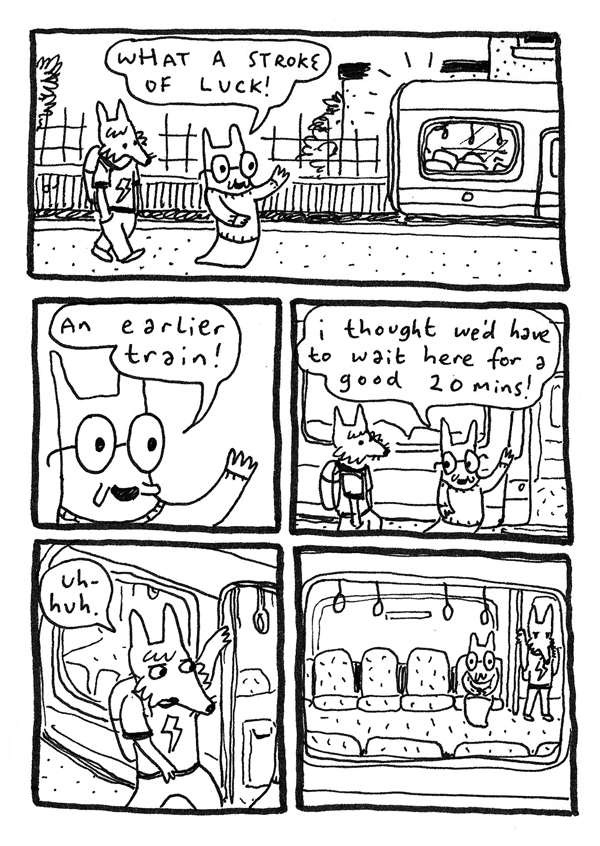 WHAT A STROKE
OF LUCK!
An earlier
train!
i thought we'd have
to wait here for a
good 20 mins!
uh-
huh.